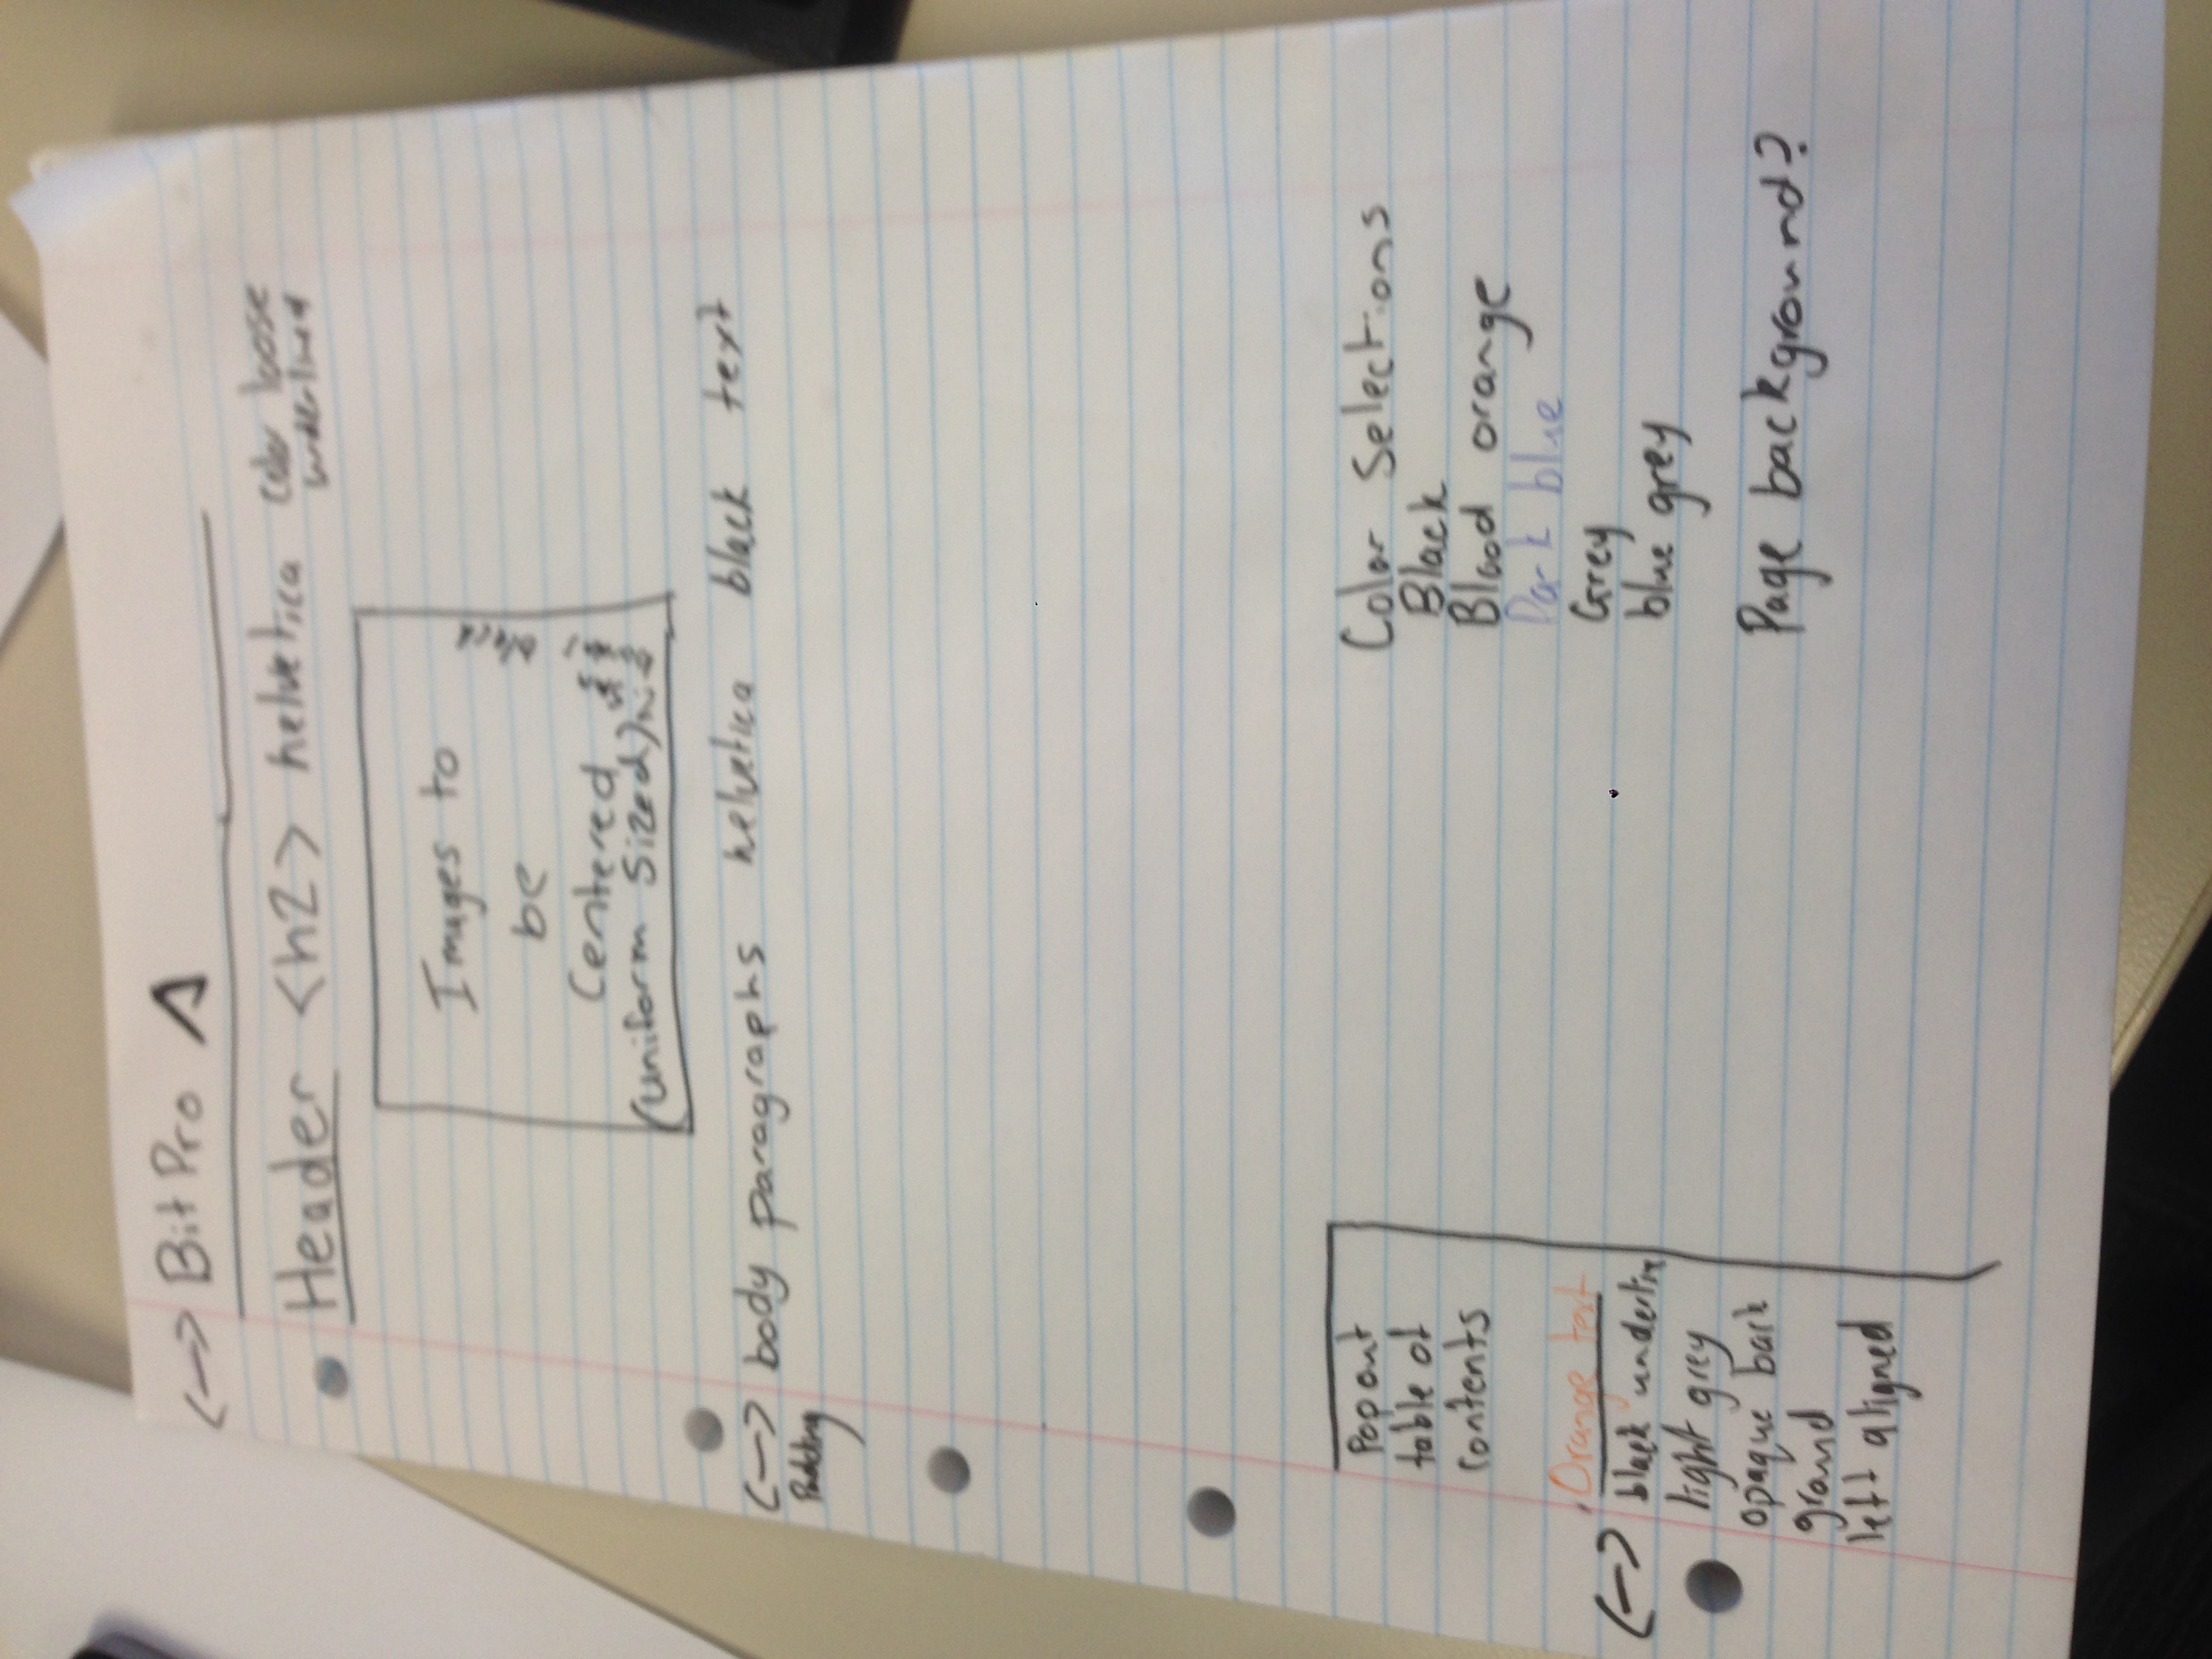 <-> BitPro
Header <h2> helvetica color loose
underlined
Images to
be
Centered
(uniform Sized)
<-> body paragraphs helvetica black text
Padding
Pop out
table of
contents
Orange text
<-> black underline
light grey
opaque back
ground
left aligned
Color Selections
Black
Blood orange
Dark blue
Grey
blue grey
Page background?